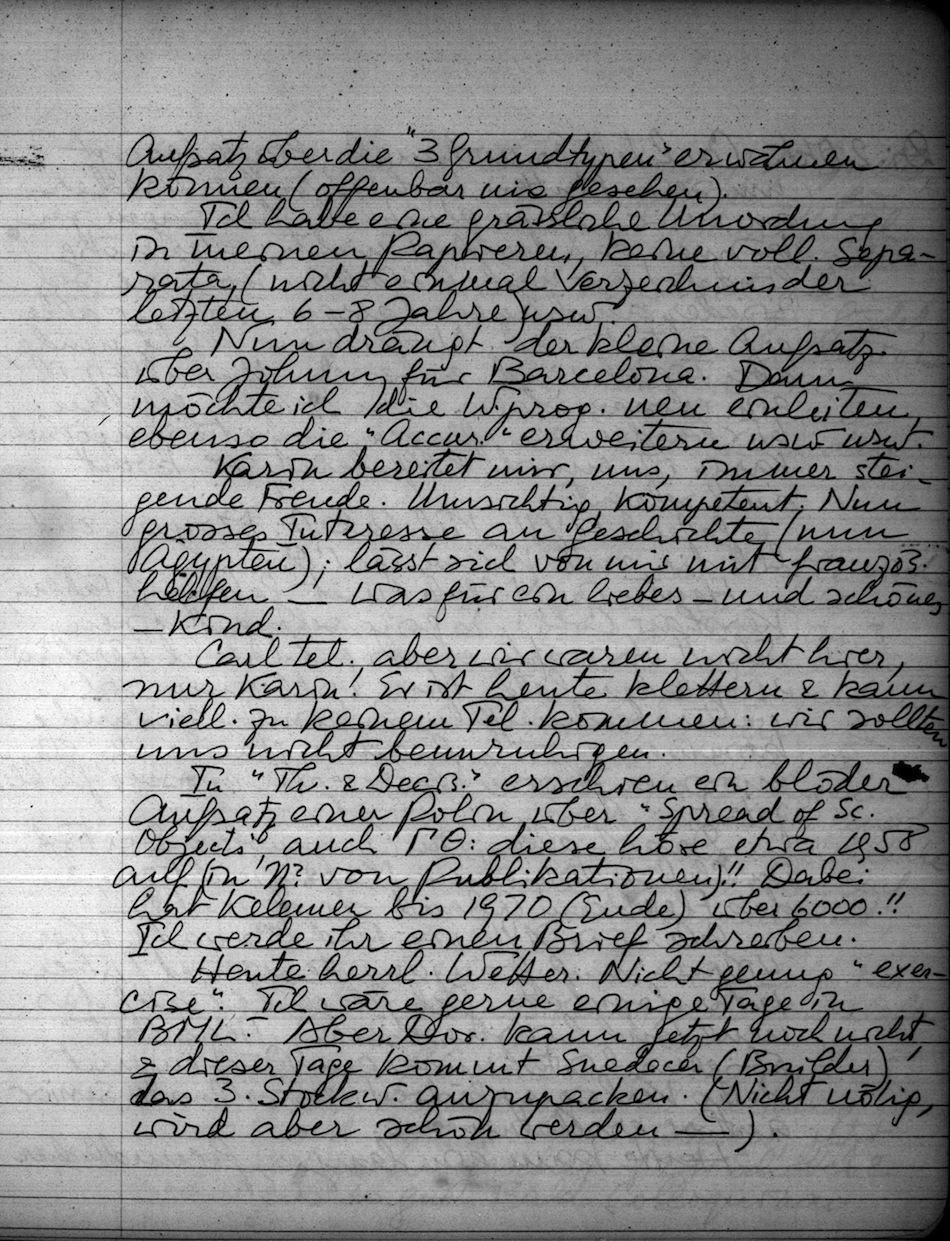 Aufsatz über die "3 Grundtypen" erwähnen
können (offenbar nie gesehen).
Ich habe eine grässliche Unordnung
in meinen Papieren, keine voll. Sepa-
rata, (nicht einmal Verzeichnis der
letzten 6-8 Jahre) usw.
Nun drängt der kleine Aufsatz
über Johnny für Barcelona. Dann
möchte ich die W.prog. neu einleiten,
ebenso die "Accur." erweitern usw usw.
Karin bereitet mir, uns, immer stei-
gende Freude. Umsichtig, kompetent. Nun
grosses Interesse an Geschichte (nun
Ägypten); lässt sich von mir mit französ.
helfen — was für ein liebes – und schönes
– Kind.
Carl tel., aber wir waren nicht hier,
nur Karin! Er ist heute klettern & kann
viell. zu keinem Tel. kommen: wir sollten
uns nicht beunruhigen.
In "Th. & Decis." erschien ein blöder
Aufsatz einer Polin über "Spread of Sc.
Objects", auch ΓΘ: diese höre etwa 1958
auf (in N? von Publikationen)!! Dabei
hat Kelemen bis 1970 (Ende) über 6000!!
Ich werde ihr einen Brief schreiben.
Heute herrl. Wetter. Nicht genug "exer-
cise". Ich wäre gerne einige Tage in
BML. – Aber Dor. kann jetzt noch nicht,
& dieser Tage kommt Snedecer (Builder)
das 3. Stockw. anzupacken. (Nicht nötig,
wird aber schön werden —).